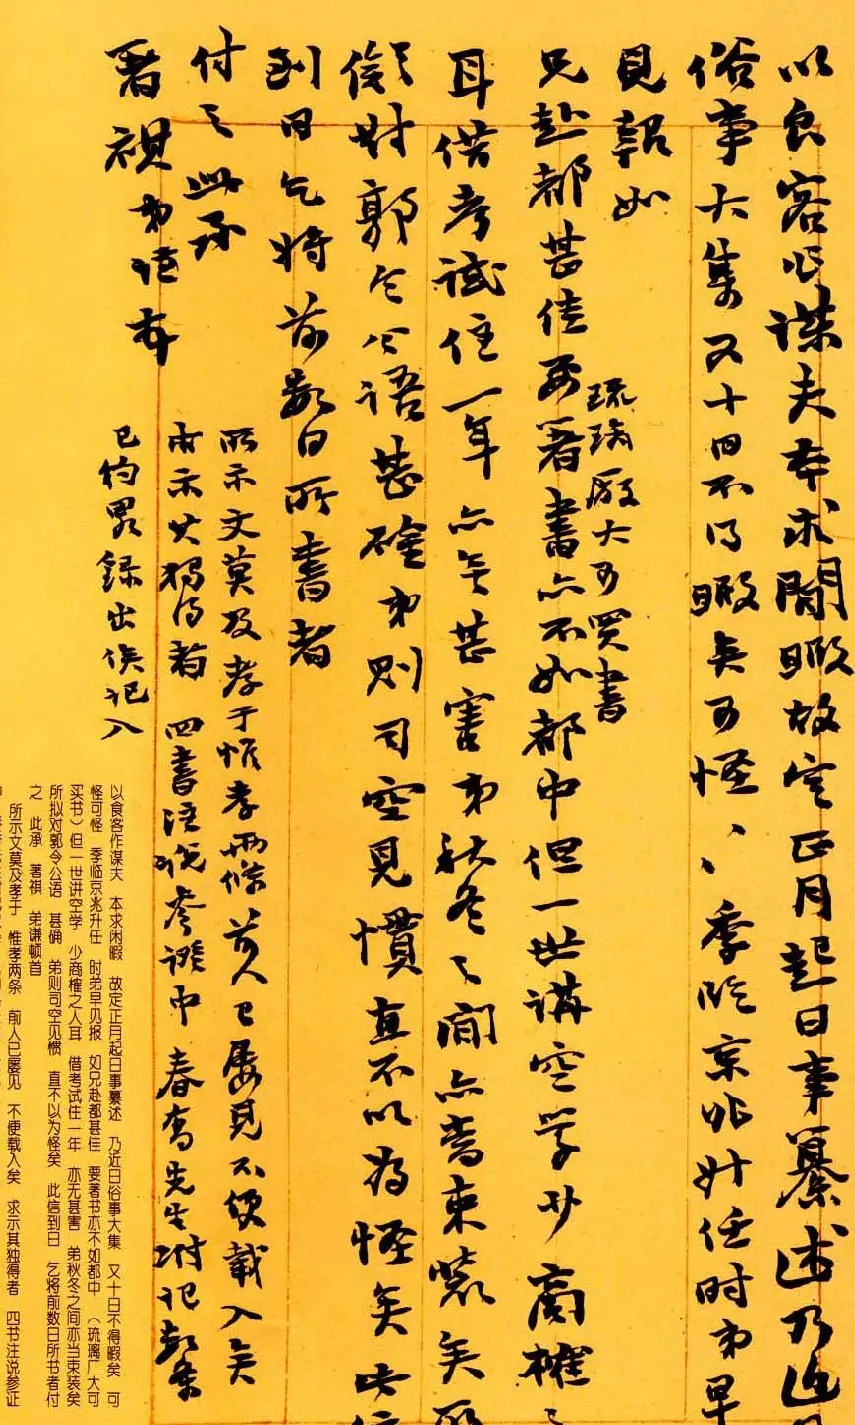 以食客作謀夫本求閒暇故定正月起日事纂述乃近
俗事大集又十日不得暇矣可怪〻季临京兆升任时弟早
見報如
琉璃廠大可買書
兄赴都甚佳要著書亦不如都中但一世講空学少商榷
耳借考試住一年亦无甚害弟秋冬之間亦當束裝矣所
擬對郭令公語甚確弟則司空見慣直不以為怪矣此信
到日乞將前數日所書者
付之此承
著祺弟謙頓首
所示文莫及孝于惟孝兩條前人已屡見不便載入矣
求示其独得者 四書注说參證中 春喬先生附记数条
已约畧録出俟记入
以食客作谋夫 本求闲暇 故定正月起日事纂述 乃近日俗事大集 又十日不得暇矣 可
怪可怪 季临京兆升任 时弟早见报 如兄赴都甚佳 要著书亦不如都中 （琉璃厂大可
买书）但一世讲空学 少商榷之人耳 借考试住一年 亦无甚害 弟秋冬之间亦当束装矣
所拟对郭令公语 甚确 弟则司空见惯 直不以为怪矣 此信到日 乞将前数日所书者付
之 此承 著祺 弟谦顿首
所示文莫及孝于 惟孝两条 前人已屡见 不便载入矣 求示其独得者 四书注说参证